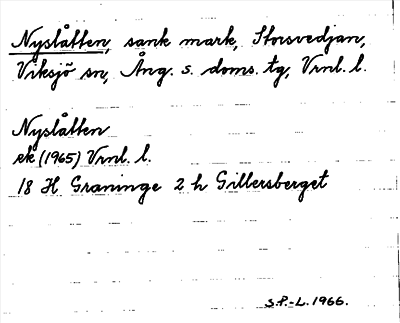 Nyslåtten, sank mark, Storsvedjan,
Viksjö sn, Ång. s. doms. tg, Vrnl. l.
Nyslåtten
ek (1965) Vrnl. l.
18 H Graninge 2 h Gillersberget
S.P.-L. 1966.